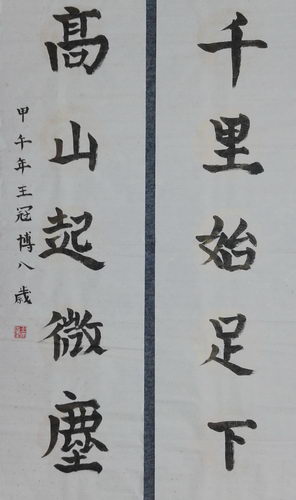 千里始足下
髙山起微塵
甲午年王冠博八歲